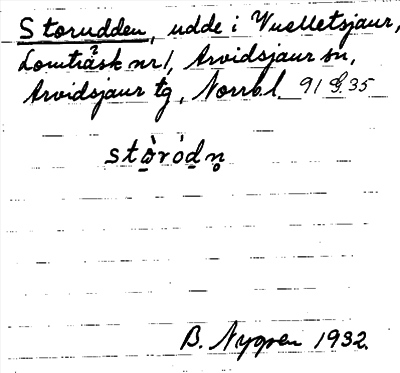 Storudden, udde i Vuolletsjaur,
Lomträsk nr 1, Arvidsjaur sn,
Arvidsjaur tg, Norrb l. 35
B. Nygren 1932.